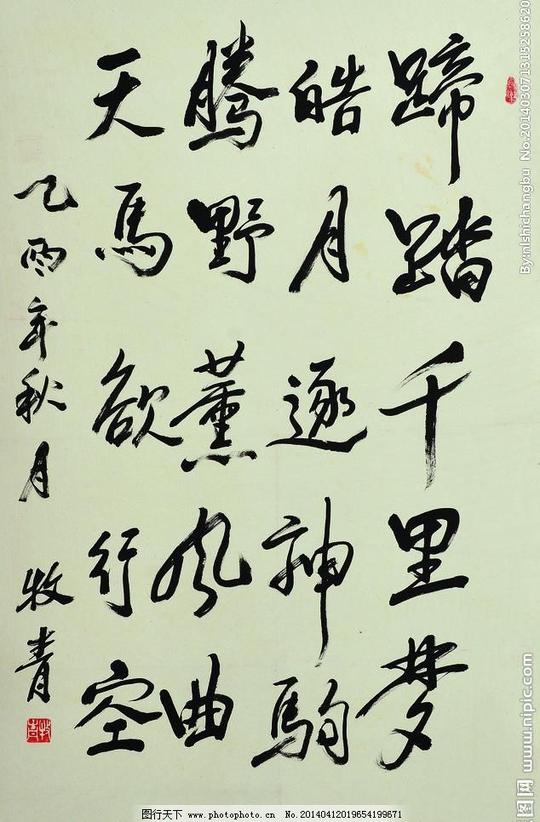 蹄踏千里梦
皓月逐神驹
腾野薰风曲
天马欲行空
乙酉年秋月 牧青
By:nlshichangbu No.20140307131525862​0
www.nipic.com
图行天下 www.photophoto.cn No.20140412019654199671